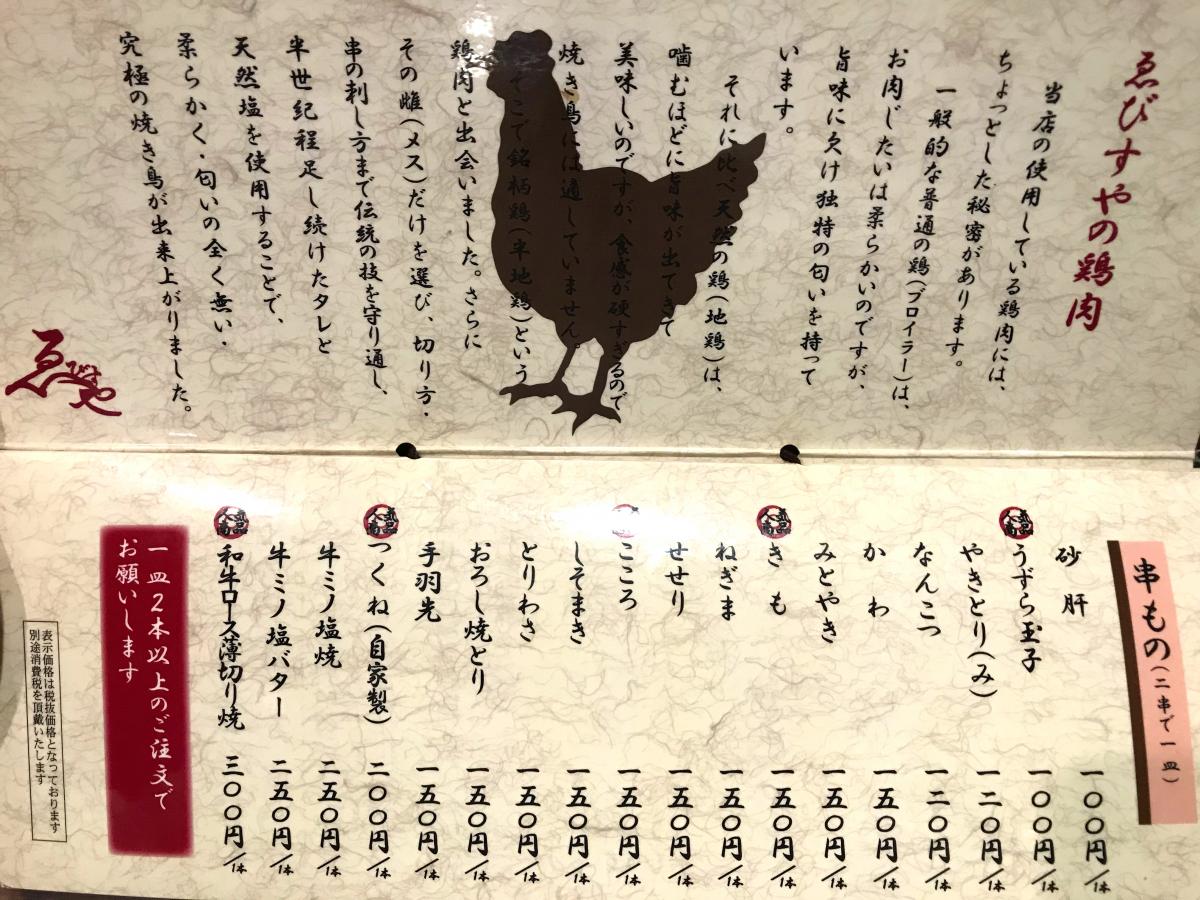 ゑびすやの鶏肉
当店の使用している鶏肉には、
ちょっとした秘密があります。
一般的な普通の鶏(ブロイラー)は、
お肉じたいは柔らかいのですが、
旨味に欠け独特の匂いを持って
います。
それに比べ天然の鶏(地鶏)は、
噛むほどに旨味が出てきて
美味しいのですが、食感が硬すぎるので
焼き鳥には適していません。
そこで銘柄鶏(半地鶏)という
鶏肉と出会いました。さらに
その雌(メス)だけを選び、切り方・
串の刺し方まで伝統の技を守り通し、
半世紀程足し続けたタレと
天然塩を使用することで、
柔らかく・匂いの全く無い、
究極の焼き鳥が出来上がりました。
ゑびすや
串もの(二串で一皿)
砂肝 一〇〇円/1本
人気商品 うずら玉子 一〇〇円/1本
やきとり(み) 一二〇円/1本
なんこつ 一二〇円/1本
かわ 一五〇円/1本
みとやき 一五〇円/1本
人気商品 きも 一五〇円/1本
ねぎま 一五〇円/1本
せせり 一五〇円/1本
こころ 一五〇円/1本
しそまき 一五〇円/1本
とりわさ 一五〇円/1本
おろし焼とり 一五〇円/1本
手羽先 一五〇円/1本
人気商品 つくね(自家製) 二〇〇円/1本
牛ミノ塩焼 二五〇円/1本
牛ミノ塩バター 二五〇円/1本
人気商品 和牛ロース薄切り焼 三〇〇円/1本
一皿2本以上のご注文で
お願いします
表示価格は税抜価格となっております
別途消費税を頂戴いたします